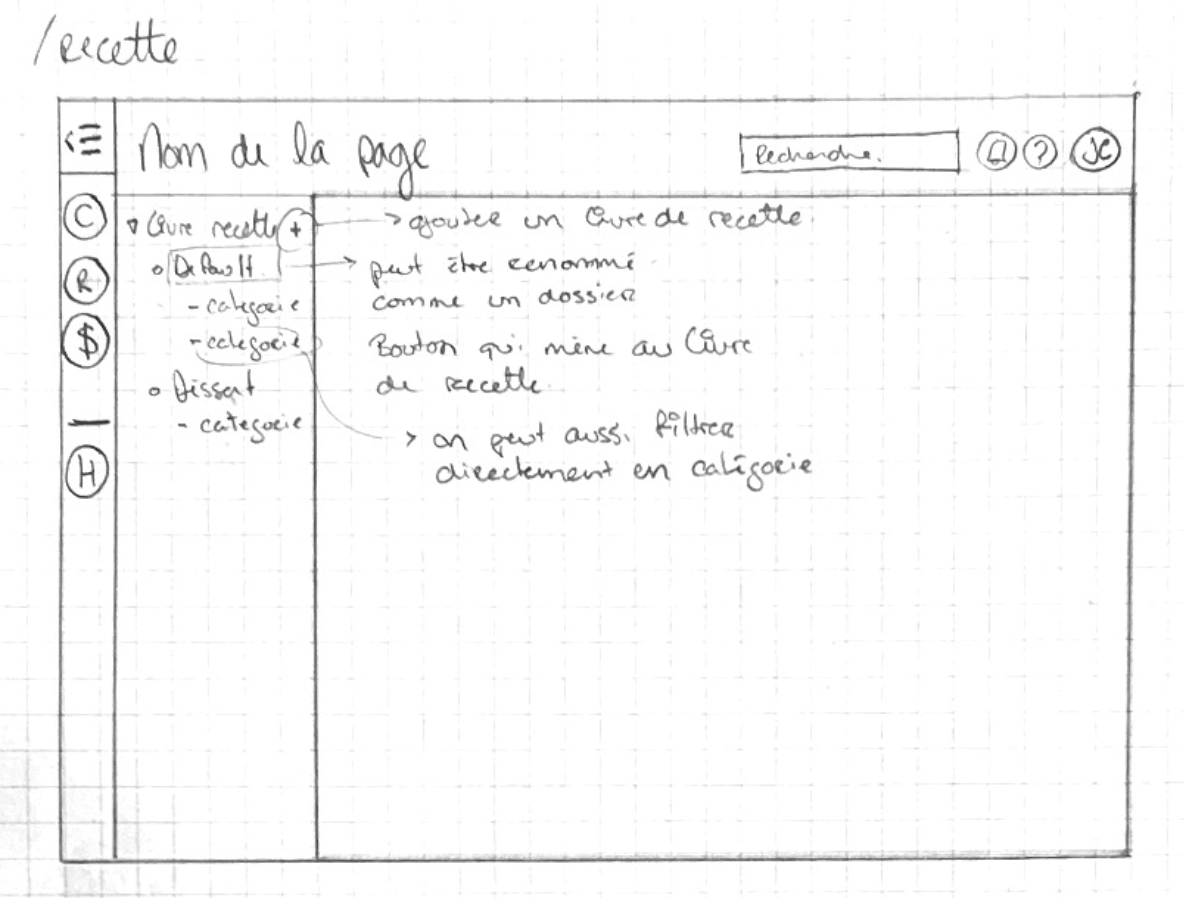 /recette
Nom de la page
Recherche.
?
JC
C
R
$
H
▿ Livre recette +
o Default
- categorie
- categorie
o Dissert
- categorie
> ajouter un livre de recette
> peut être renommé
comme un dossier
Bouton qui mène au livre
de recette.
> on peut aussi filtrer
directement en catégorie